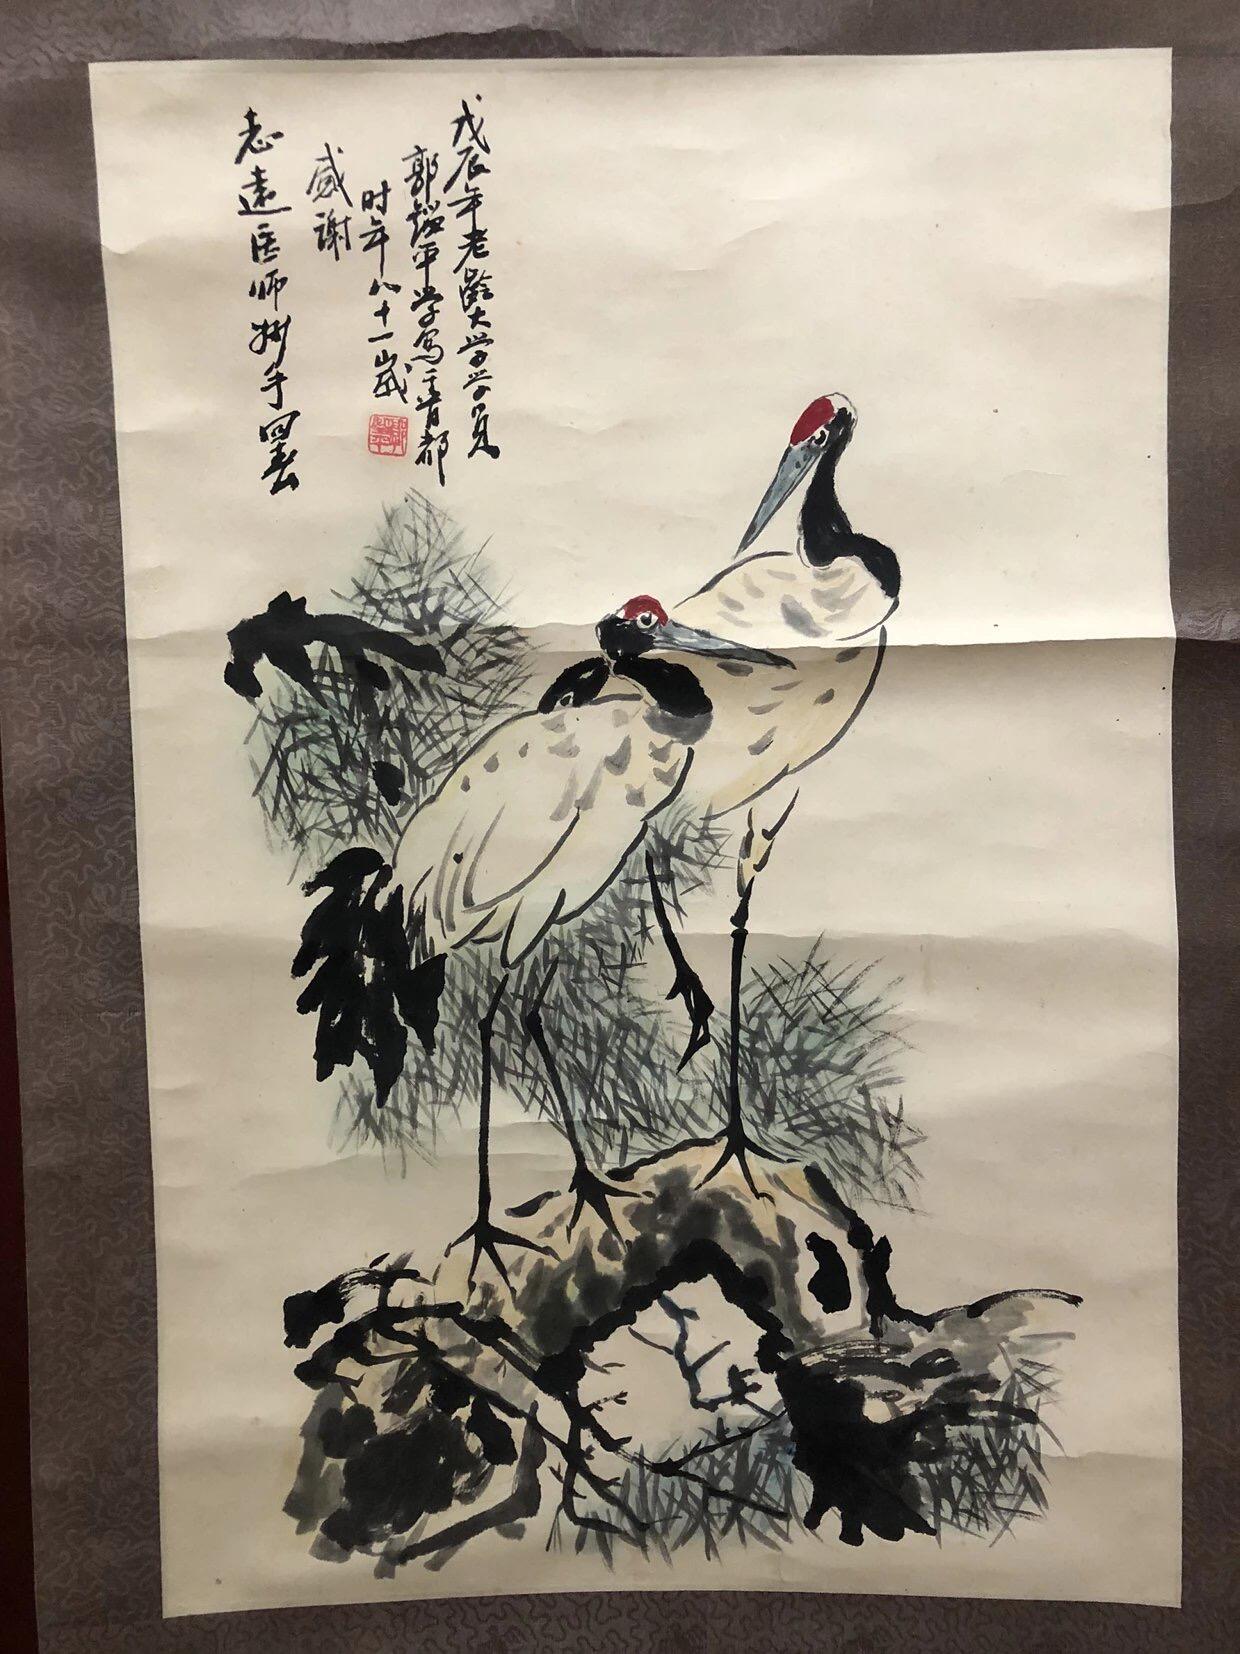 戊辰年老齡大学学员
郭 平学写于首都
时年八十一歲
感谢
志遠医师妙手回春